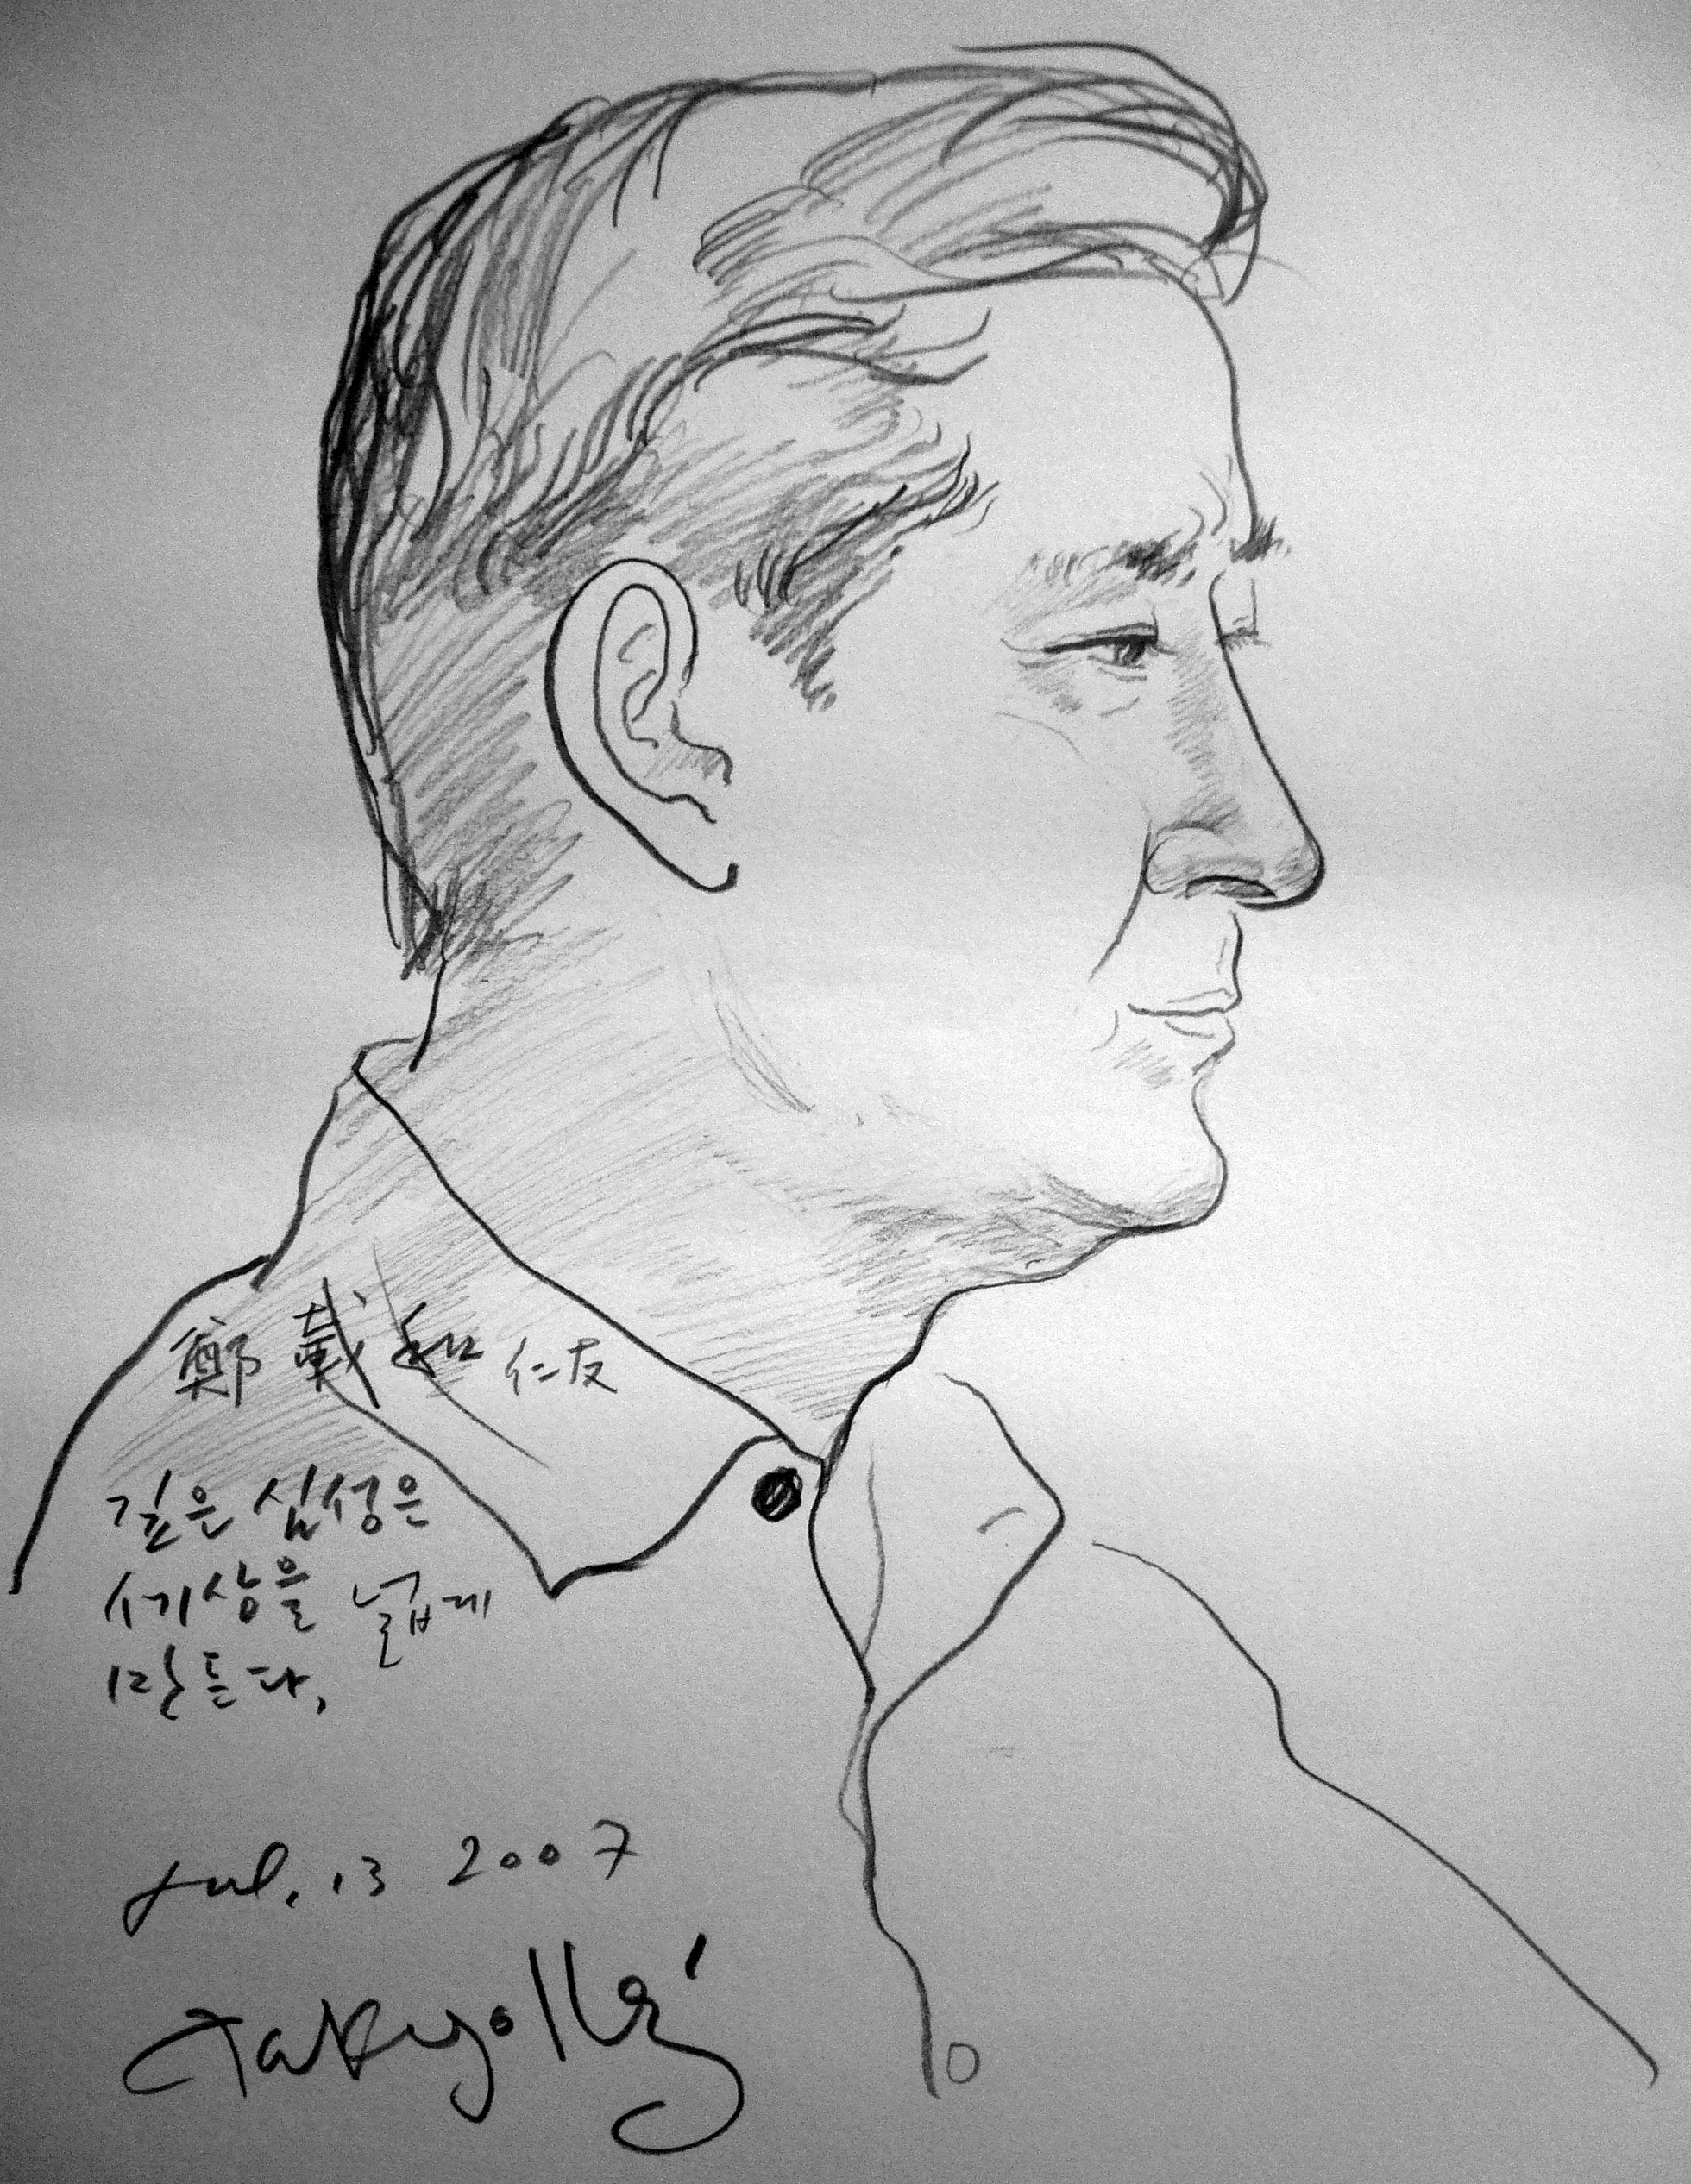 鄭 戴 和 仁友
깊은 심성은
세상을 넓게
만든다.
Jul. 13 2007